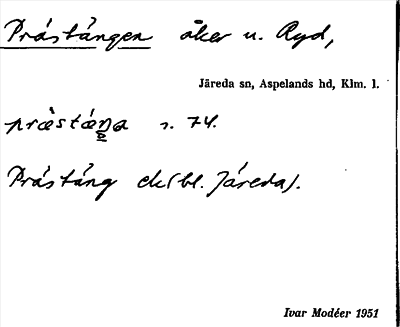 Prástángen åker u. Ryd,
Järeda sn, Aspelands hd, Klm. l.
præ̀stáŋa s. 74.
Prástáng ek(bl. Járeda).
Ivar Modéer 1951